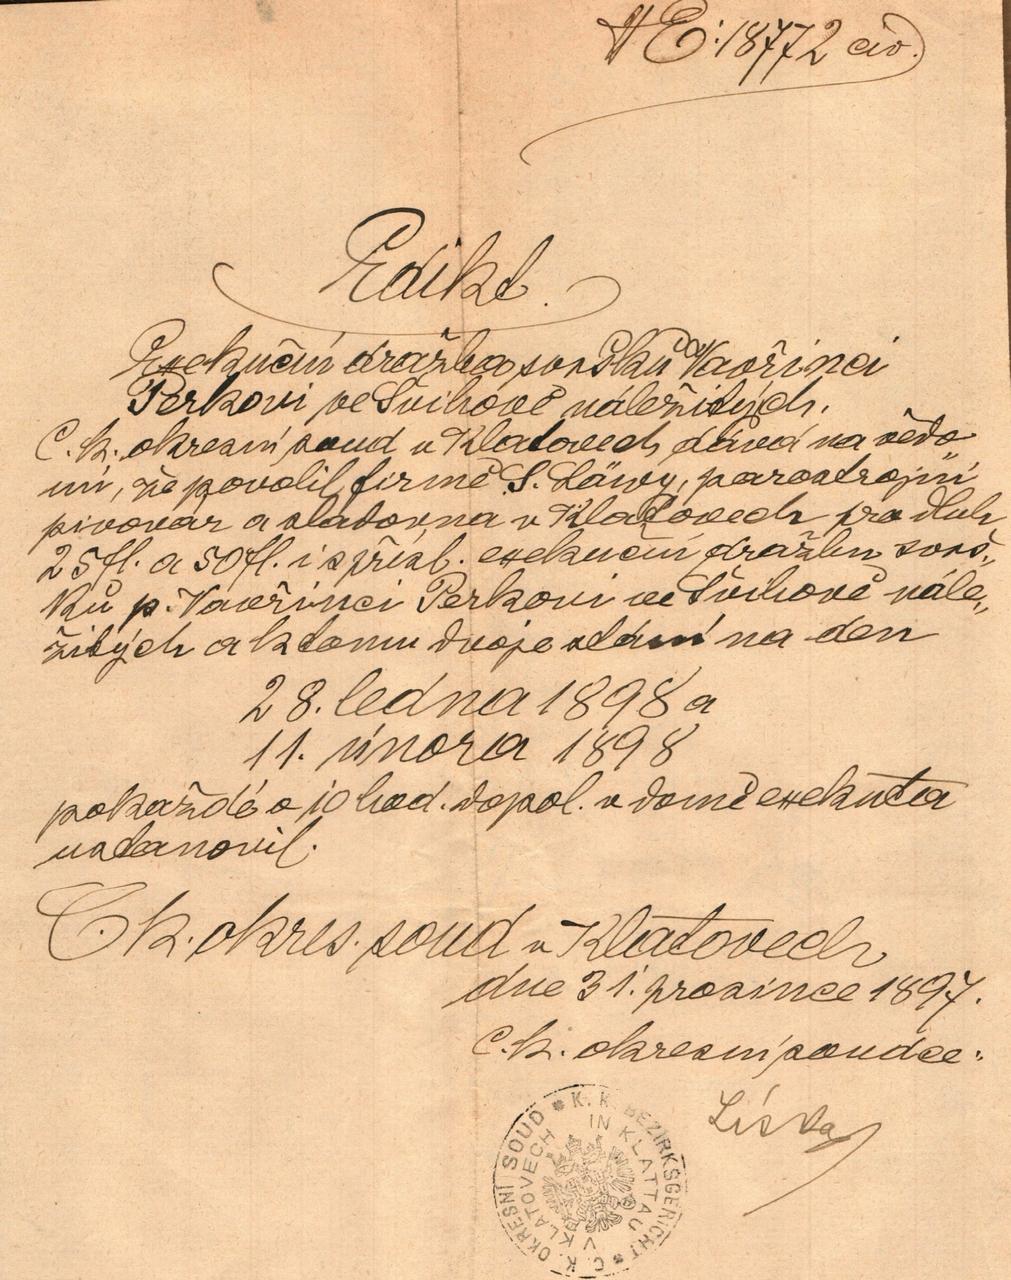 E: 18772 civ.
Edikt.
Exekuční dražba svršků Vavřinci
Perkovi ve Švihově náležitých.
C. k. okresní soud v Klatovech dává na vědo-
mí, že povolil firmě S. Läwy, parostrojní
pivovár a sladovna v Klatovech pro dluh
25 fl. a 50 fl. i s přísl. exekuční dražbu svrš-
ků p. Vavřinci Perkovi ve Švihově nále-
žitých a k tomu dvoje stání na den
28. ledna 1898 a
11. února 1898
pokaždé o 10 hod. dopol. v domě exekuta
ustanovil.
C. k. okres. soud v Klatovech
dne 31. prosince 1897.
C. k. okresní soudce:
C. K. OKRESNÍ SOUD * K. K. BEZIRKSGERICHT *
V KLATOVECH IN KLATTAU